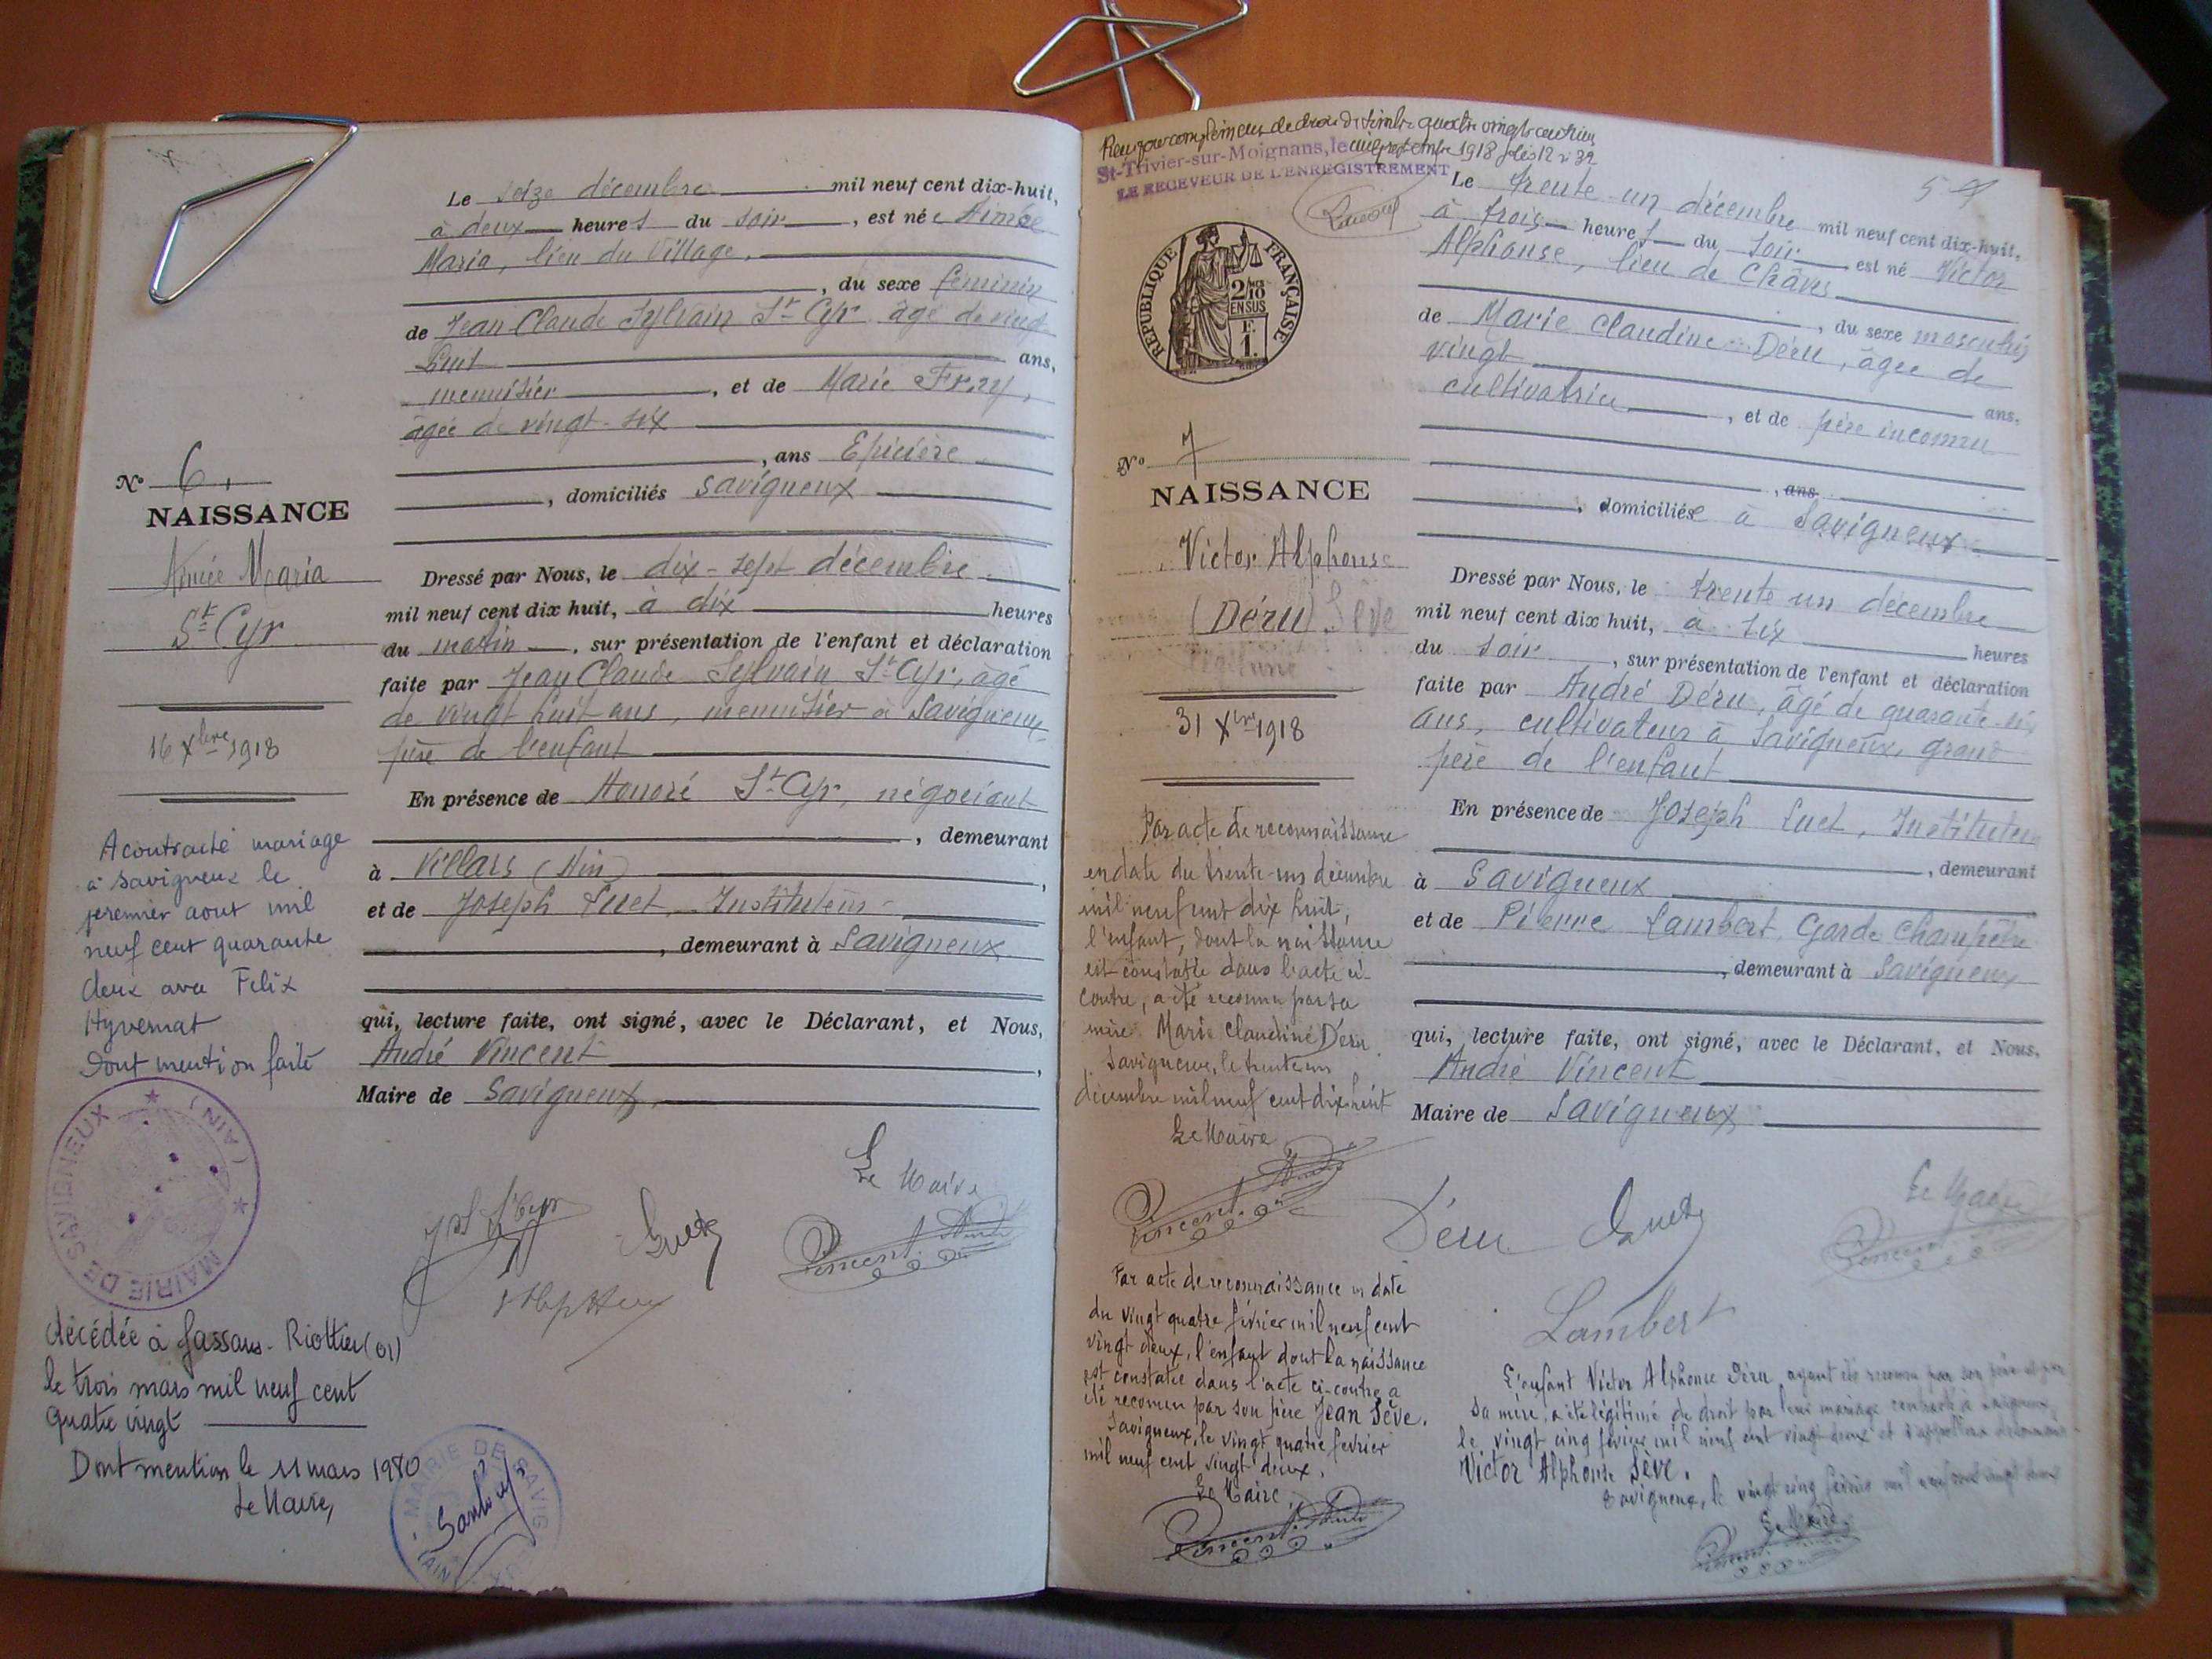 Le seize décembre mil neuf cent dix-huit,
à deux heures du soir, est née Aimée
Maria, lieu du Village,
, du sexe féminin
de Jean Claude Sylvain St Cyr âgé de vingt
huit ans,
menuisier, et de Marie
âgée de vingt-six
, ans Epicière
, domiciliés Savigneux
No 6.
NAISSANCE
Aimée Maria
St Cyr
16 Xbre 1918
Dressé par Nous, le dix-sept décembre
mil neuf cent dix huit, à dix heures
du matin, sur présentation de l'enfant et déclaration
faite par Jean Claude Sylvain St Cyr, âgé
de vingt huit ans, menuisier à Savigneux
père de l'enfant
En présence de Honoré St Cyr, négociant
, demeurant
à Villars (Ain),
et de Joseph Suet, Instituteur
, demeurant à Savigneux
qui, lecture faite, ont signé, avec le Déclarant, et Nous,
André Vincent,
Maire de Savigneux,
Le Maire
A contracté mariage
à Savigneux le
premier aout mil
neuf cent quarante
deux avec Felix
Hyvernat
Dont mention faite
MAIRIE DE SAVIGNEUX (AIN)
décédée à Jassans-Riottier (01)
le trois mars mil neuf cent
quatre vingt
Dont mention le 11 mars 1980
Le Maire,
MAIRIE DE SAVIGNEUX
AIN
1918
St-Trivier-sur-Moignans, le
LE RECEVEUR DE L'ENREGISTREMENT
RÉPUBLIQUE FRANÇAISE
2/10
EN SUS
F.
1.
Le trente-un décembre mil neuf cent dix-huit,
à trois heures du soir est né Victor
Alphonse, lieu de
, du sexe masculin
de Marie Claudine Déru, âgée de
vingt ans,
cultivatrice, et de père inconnu
, ans
, domiciliée à Savigneux
No 7
NAISSANCE
Victor Alphonse
(Déru) Sève
31 Xbre 1918
Dressé par Nous, le trente un décembre
mil neuf cent dix huit, à six heures
du soir, sur présentation de l'enfant et déclaration
faite par André Déru, âgé de quarante-six
ans, cultivateur à Savigneux, grand
père de l'enfant
En présence de Joseph Suet, Instituteur
, demeurant
à Savigneux
et de Pierre Lambert, Garde Champêtre
, demeurant à Savigneux
qui, lecture faite, ont signé, avec le Déclarant, et Nous,
André Vincent
Maire de Savigneux
Déru
Le Maire
Lambert
Par acte de reconnaissance
en date du trente-un décembre
mil neuf cent dix huit,
l'enfant, dont la naissance
est constatée dans l'acte ci-
contre, a été reconnu par sa
mère Marie Claudine Déru
Savigneux, le trente un
décembre mil neuf cent dix huit
Le Maire
Par acte de reconnaissance en date
du vingt quatre février mil neuf cent
vingt deux, l'enfant dont la naissance
est constatée dans l'acte ci-contre a
été reconnu par son père Jean Sève.
Savigneux, le vingt quatre février
mil neuf cent vingt deux.
Le Maire
L'enfant Victor Alphonse Déru ayant été reconnu par son père et par
sa mère, a été légitimé de droit par leur mariage contracté à Savigneux,
le vingt cinq février mil neuf cent vingt deux et s'appellera désormais
Victor Alphonse Sève.
Savigneux, le vingt cinq février mil neuf cent vingt deux
Le Maire